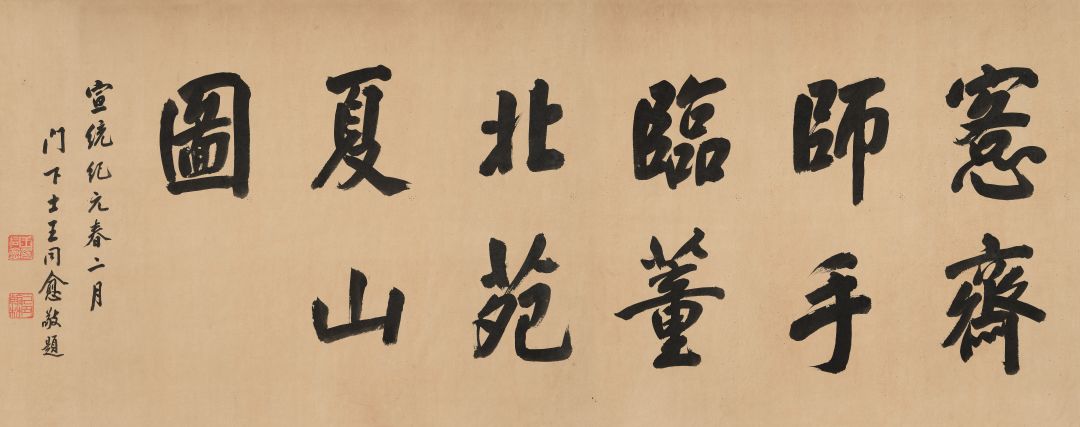 窓齋
師手
臨董
北苑
夏山
圖
宣統紀元春二月
門下士王同愈敬題